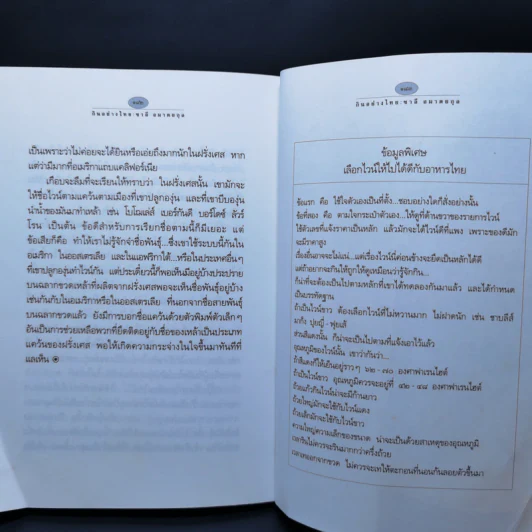 กินอย่างไทย: ชาลี อมาตยกุล
เป็นเพราะว่าไม่ค่อยจะได้ยินหรือเอ่ยถึงมากนักในฝรั่งเศส หาก
แต่ว่ามีมากที่อเมริกาแถบแคลิฟอร์เนีย
เกือบจะลืมที่จะเรียนให้ทราบว่า ในฝรั่งเศสนั้น เขามักจะ
ให้ชื่อไวน์ตามแคว้นตามเมืองที่เขาปลูกองุ่น และที่เขาบีบองุ่น
นำน้ำของมันมาทำเหล้า เช่น โบโฌเล่ส์ เบอร์กันดี บอร์โดซ์ ลัวร์
โรน เป็นต้น ข้อดีสำหรับการเรียกชื่อตามนี้ก็มีเยอะ แต่
ข้อเสียก็คือ ทำให้เราไม่รู้จักจำชื่อพันธุ์...ซึ่งเขาใช้ระบบนี้กันใน
อเมริกา ในออสเตรเลีย และในแอฟริกาใต้...หรือในประเทศอื่นๆ
ที่เขาปลูกองุ่นทำไวน์กัน แต่ประเดี๋ยวนี้ก็พอเห็นมีอยู่บ้างประปราย
บนฉลากขวดเหล้าที่ผลิตจากฝรั่งเศสพอจะเห็นชื่อพันธุ์อยู่บ้าง
เช่นกันกับในอเมริกาหรือในออสเตรเลีย ที่นอกจากชื่อสายพันธุ์
บนฉลากขวดแล้ว ยังมีการบอกชื่อแคว้นด้วยตัวพิมพ์ตัวเล็กๆ
อันเป็นการช่วยเหลือพวกที่ยึดติดอยู่กับชื่อของเหล้าเป็นประเภท
แคว้นของฝรั่งเศส พอให้เกิดความกระจ่างในใจขึ้นมาทันทีที่
แลเห็น
กินอย่างไทย: ชาลี อมาตยกุล
ข้อมูลพิเศษ
เลือกไวน์ให้ไปได้ดีกับอาหารไทย
ข้อแรก คือ ใช้ใจตัวเองเป็นที่ตั้ง...ชอบอย่างใดก็สั่งอย่างนั้น
ข้อที่สอง คือ ตามใจกระเป๋าตัวเอง...ให้ดูที่ด้านขวาของรายการไวน์
ใช้ตัวเลขที่แจ้งราคาเป็นหลัก แล้วมักจะได้ไวน์ดีที่แพง เพราะของดีมัก
จะมีราคาสูง
เรื่องอื่นอาจจะไม่แน่...แต่เรื่องไวน์นี่ค่อนข้างจะยึดเป็นหลักได้ดี
แต่ถ้าอยากจะกินให้ถูกให้ดูเหมือนว่ารู้จักกิน...
ก็น่าที่จะต้องเป็นไปตามหลักที่เขาได้ทดลองกันมาแล้ว และได้กำหนด
เป็นบรรทัดฐาน
ถ้าเป็นไวน์ขาว ต้องเลือกไวน์ที่ไม่หวานมาก ไม่ฝาดนัก เช่น ชาบลีส์
มาก็ง ปุยญี่ - ฟุยเส่
ส่วนสีแดงนั้น ก็น่าจะเป็นไปตามที่แจ้งเอาไว้แล้ว
อุณหภูมิของไวน์นั้น เขาว่ากันว่า...
ถ้าสีแดงก็ให้เย็นอยู่ราวๆ ๖๒ - ๗๐ องศาฟาเรนไฮต์
ถ้าเป็นไวน์ขาว อุณหภูมิควรจะอยู่ที่ ๔๒ - ๔๘ องศาฟาเรนไฮต์
ถ้วยแก้วกินไวน์น่าจะมีก้านยาว
ถ้วยใหญ่มักจะใช้กับไวน์แดง
ถ้วยเล็กมักจะใช้กับไวน์ขาว
ความใหญ่ความเล็กของขนาด น่าจะเป็นด้วยสาเหตุของอุณหภูมิ
เวลารินไม่ควรจะรินมากกว่าครึ่งถ้วย
เวลาหยอกจากขวด ไม่ควรจะเทให้ตะกอนที่นอนก้นลอยตัวขึ้นมา